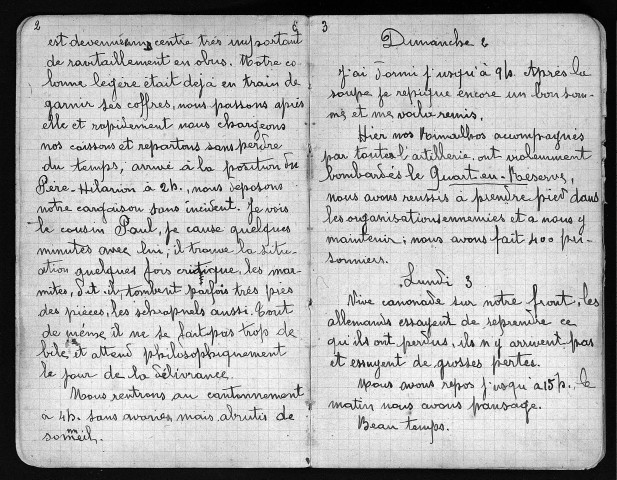 2
est devenue un centre très important
de ravitaillement en obus. Notre co-
lonne legère était dejà en train de
garnir ses coffres, nous passons après
elle et rapidement nous chargeons
nos caissons et repartons sans perdre
du temps, arrivé à la position du
Père-Hilarion à 2h., nous déposons
notre cargaison sans incident. Je vois
le cousin Paul, je cause quelques
minutes avec lui; il trouve la situ-
ation quelques fois critique, les mar-
mites, dit-il, tombent parfois très près
des pièces, les schrapnels aussi. Tout
de même il ne se fait pas trop de
bile et attend philosophiquement
le jour de la délivrance.
Nous rentrons au cantonnement
à 4h. sans avaries mais abrutis de
sommeil.
3
Dimanche 2
J'ai dormi jusqu'à 9h. Après la
soupe je repique encore un bon som-
me et me voilà remis.
Hier nos Rimailhos accompagnés
par toute l'artillerie, ont violemment
bombardés le Quart-en-Réserve,
nous avons reussis à prendre pied dans
les organisations ennemies et a nous y
maintenir; nous avons fait 400 pri-
sonniers.
Lundi 3
Vive canonade sur notre front, les
allemands essayent de reprendre ce
qu'ils ont perdus, ils n'y arrivent pas
et essuyent de grosses pertes.
Nous avons repos jusqu'a 15h. le
matin nous avons pansage.
Beau temps.